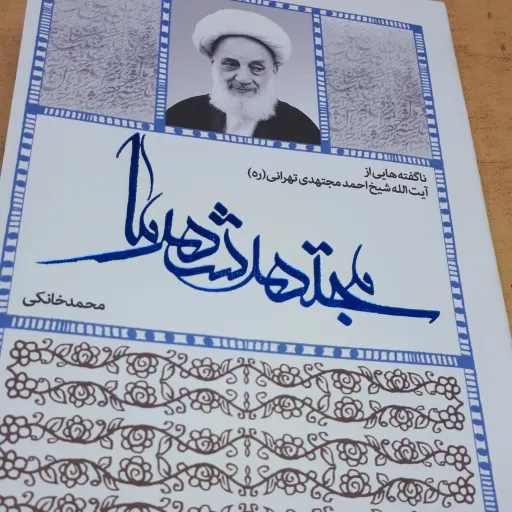 ناگفته هایی از
آیت الله شیخ احمد مجتهدی تهرانی (ره)
مجتهد شهر ما
محمد خانکی